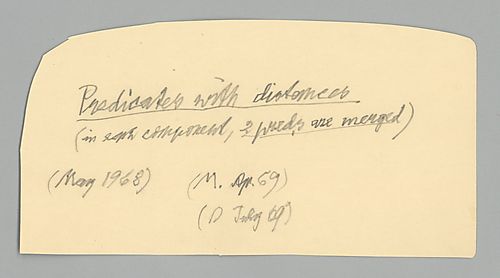 Predicates with distances
(in each component, 2 preds are merged)
(May 1968) (M. Ap. 69)
(D July 69)